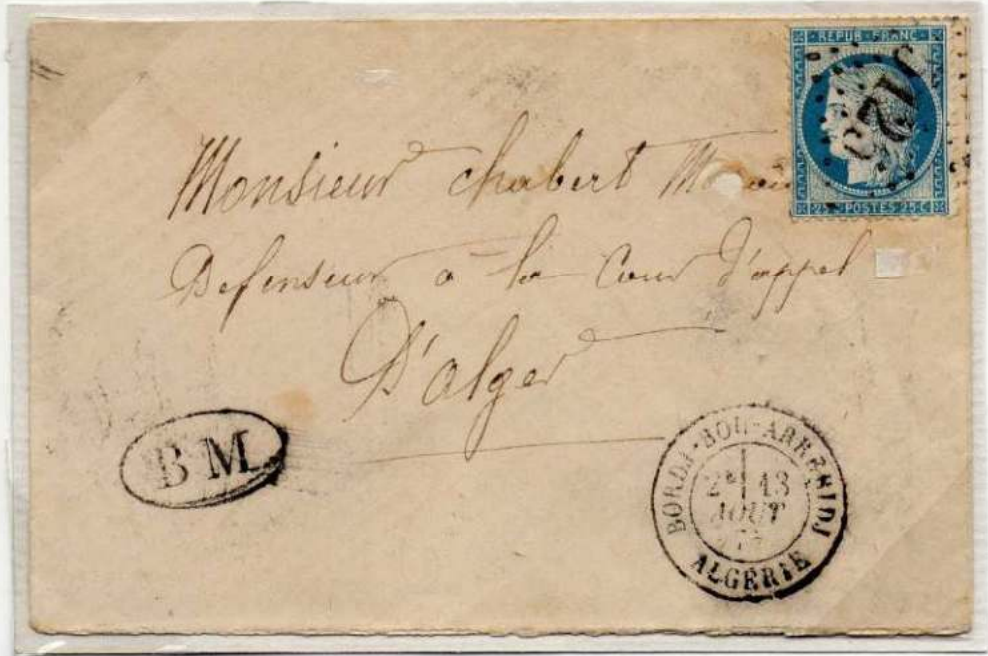 REPUB·FRANC·
25 C POSTES 25 C
Monsieur Chabert
Defenseur à la Cour d'appel
D'alger
B M
BORDJ-BOU-ARRERIDJ
2E 13
AOUT
ALGÉRIE